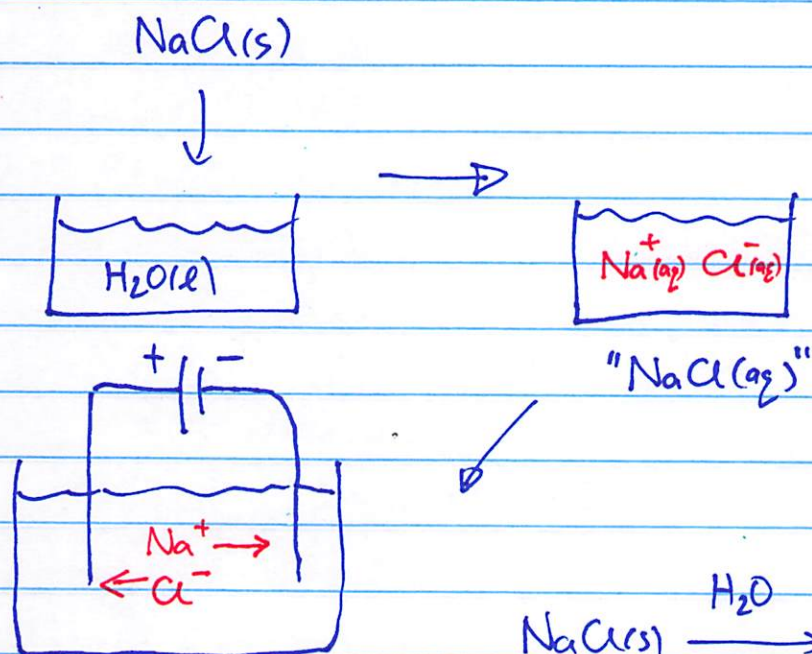 NaCl(s)
H₂O(l)
Na⁺(aq) Cl⁻(aq)
"NaCl(aq)"
+ -
Na⁺ →
← Cl⁻
NaCl(s) H₂O →